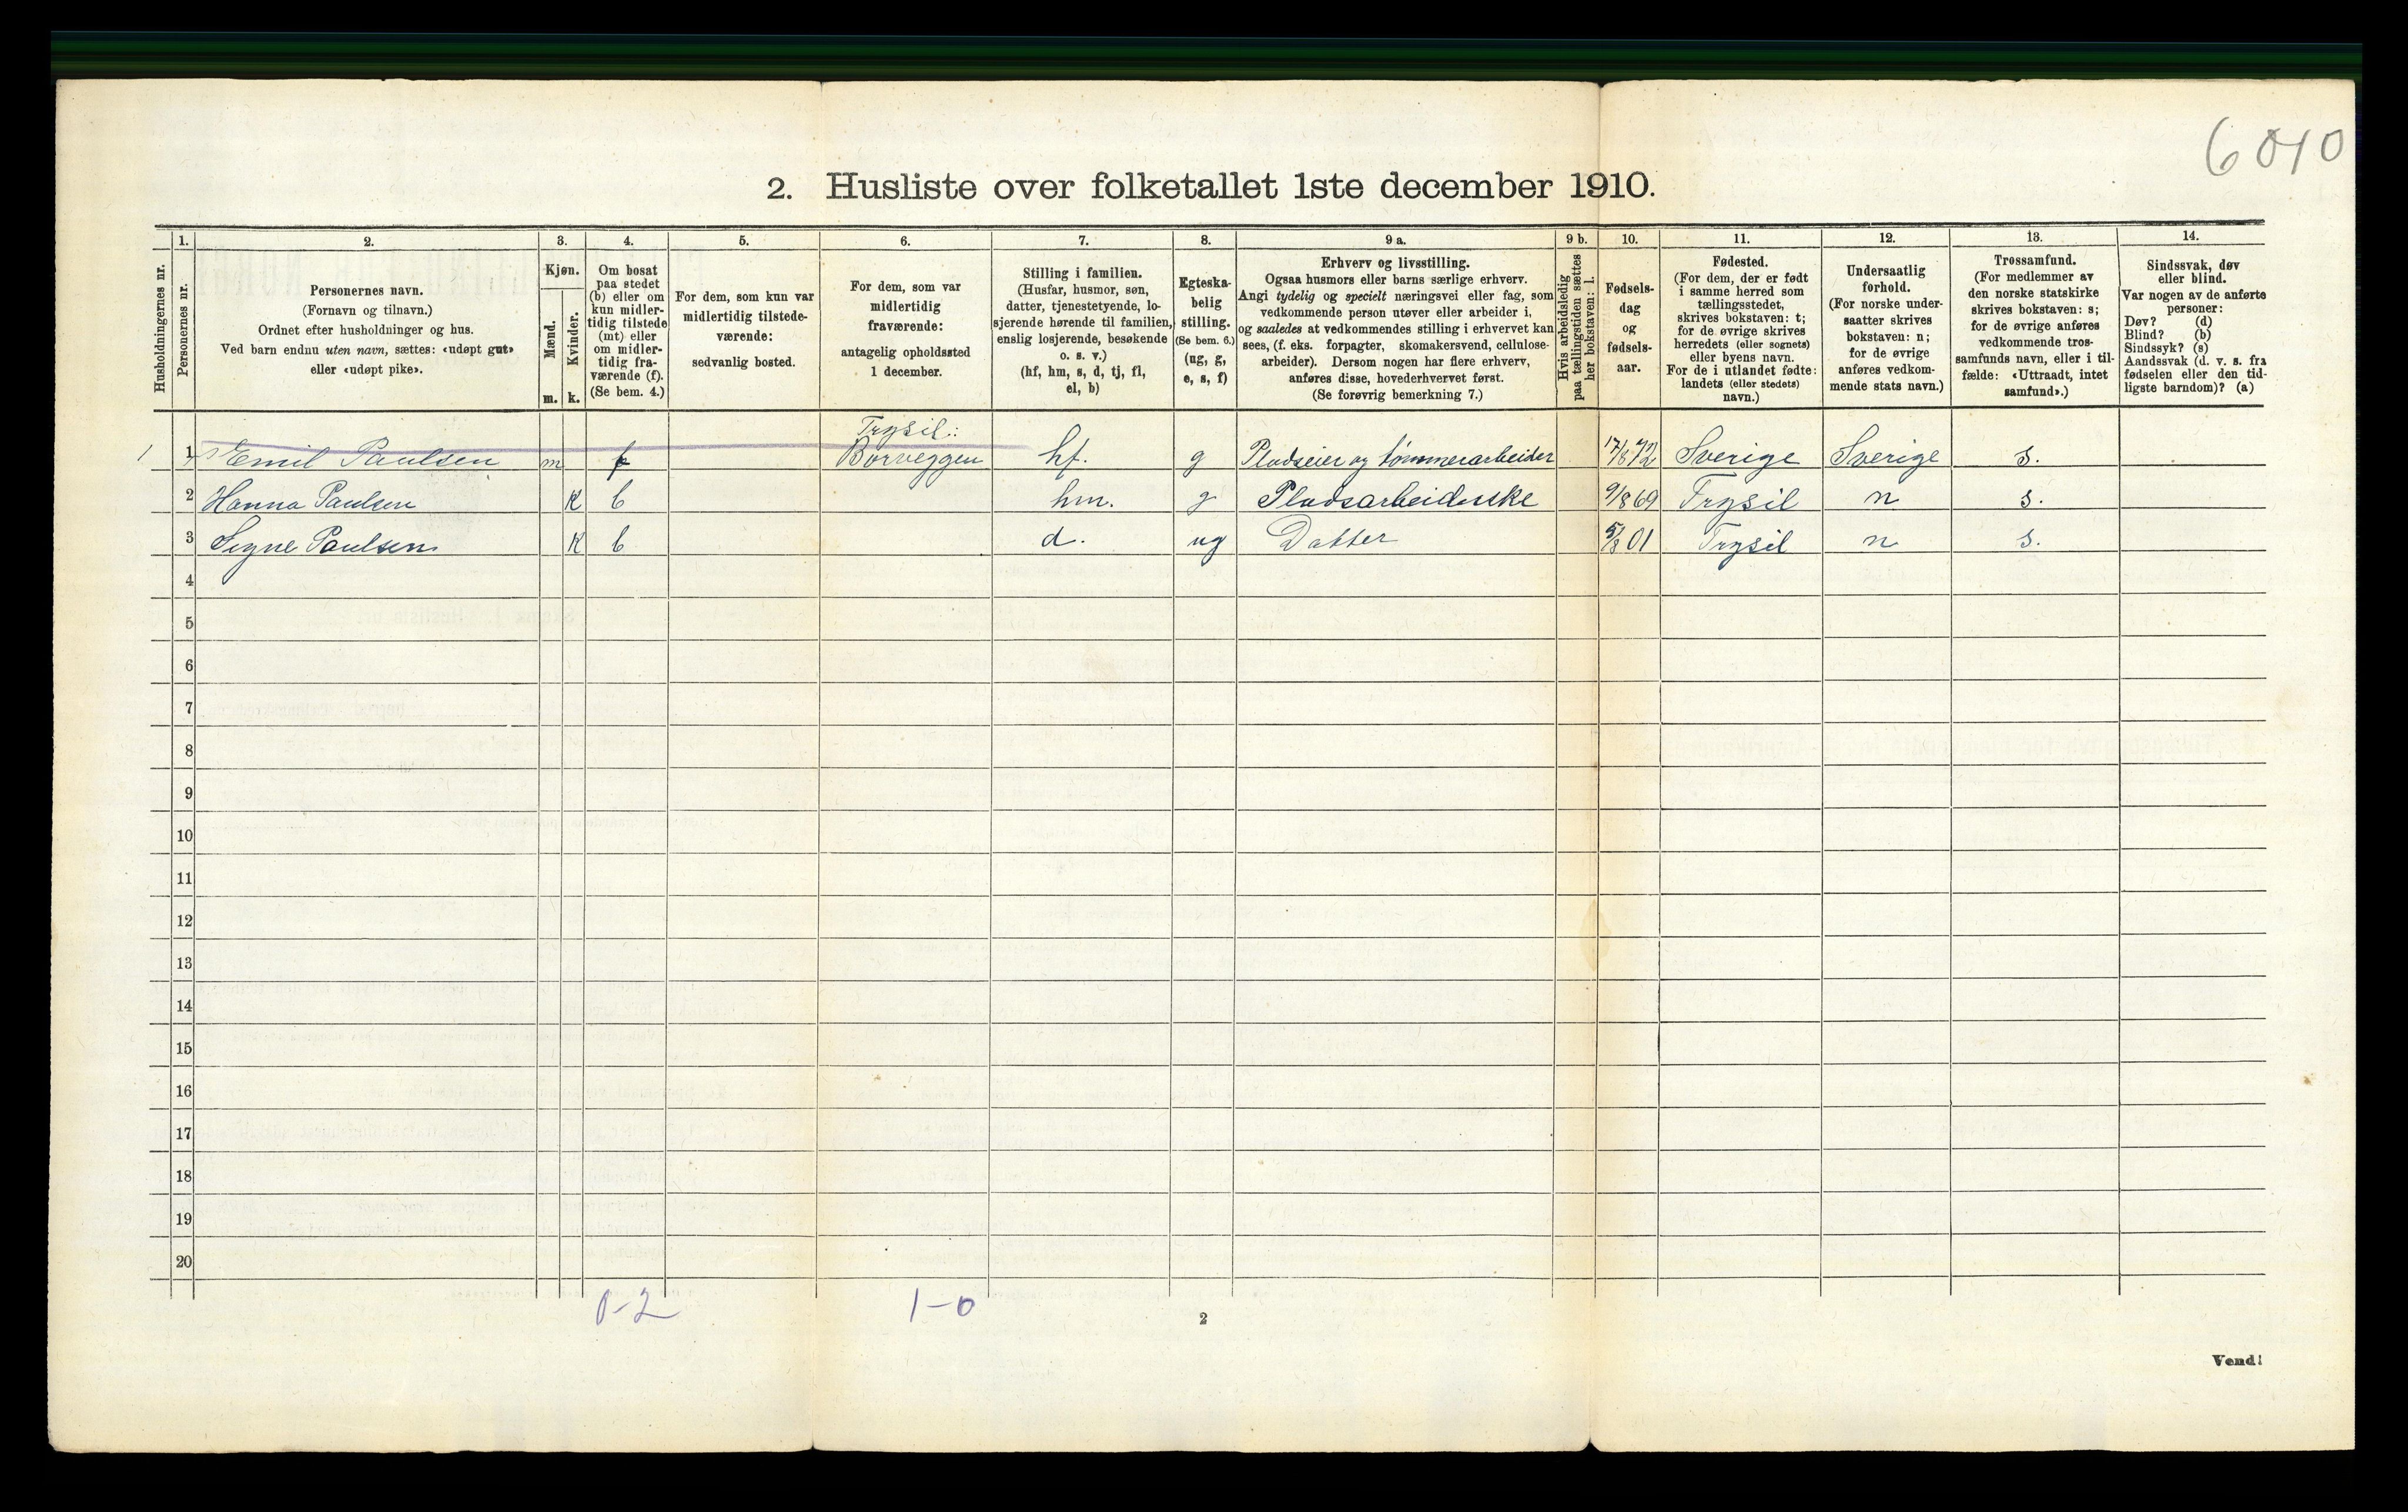 6040
2. Husliste over folketallet 1ste december 1910.
Husholdningernes nr.
1.
Personernes nr.
2.
Personernes navn.
(Fornavn og tilnavn.)
Ordnet efter husholdninger og hus.
Ved barn endnu uten navn, sættes: «udøpt gut»
eller «udøpt pike».
3.
Kjøn.
Mænd.
Kvinder.
m. k.
4.
Om bosat
paa stedet
(b) eller om
kun midler-
tidig tilstede
(mt) eller
om midler-
tidig fra-
værende (f).
(Se bem. 4.)
5.
For dem, som kun var
midlertidig tilstede-
værende:
sedvanlig bosted.
6.
For dem, som var
midlertidig
fraværende:
antagelig opholdssted
1 december.
7.
Stilling i familien.
(Husfar, husmor, søn,
datter, tjenestetyende, lo-
sjerende hørende til familien,
enslig losjerende, besøkende
o. s. v.)
(hf, hm, s, d, tj, fl,
el, b)
8.
Egteska-
belig
stilling.
(Se bem. 6.)
(ug, g,
e, s, f)
9 a.
Erhverv og livsstilling.
Ogsaa husmors eller barns særlige erhverv.
Angi tydelig og specielt næringsvei eller fag, som
vedkommende person utøver eller arbeider i,
og saaledes at vedkommendes stilling i erhvervet kan
sees, (f. eks. forpagter, skomakersvend, cellulose-
arbeider). Dersom nogen har flere erhverv,
anføres disse, hovederhvervet først.
(Se forøvrig bemerkning 7.)
9 b.
Hvis arbeidsledig
paa tællingstiden sættes
her bokstaven: l.
10.
Fødsels-
dag
og
fødsels-
aar.
11.
Fødested.
(For dem, der er født
i samme herred som
tællingsstedet,
skrives bokstaven: t;
for de øvrige skrives
herredets (eller sognets)
eller byens navn.
For de i utlandet fødte:
landets (eller stedets)
navn.)
12.
Undersaatlig
forhold.
(For norske under-
saatter skrives
bokstaven: n;
for de øvrige
anføres vedkom-
mende stats navn.)
13.
Trossamfund.
(For medlemmer av
den norske statskirke
skrives bokstaven: s;
for de øvrige anføres
vedkommende tros-
samfunds navn, eller i til-
fælde: «Uttraadt, intet
samfund».)
14.
Sindssvak, døv
eller blind.
Var nogen av de anførte
personer:
Døv? (d)
Blind? (b)
Sindssyk? (s)
Aandssvak (d. v. s. fra
fødselen eller den tid-
ligste barndom)? (a)
Trysil:
1 1 Emil Paulsen m f Borveggen hf. g Pladseier og tømmerarbeider 17/8 72 Sverige Sverige s.
2 Hanna Paulsen K b hm. g Pladsarbeiderske 9/8 69 Trysil n s.
3 Signe Paulsen K b d. ug Datter 5/8 01 Trysil n s.
4
5
6
7
8
9
10
11
12
13
14
15
16
17
18
19
20
0-2 1-0
2
Vend!